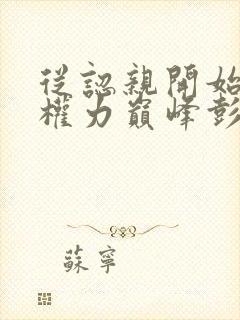 從認親開始
權力巔峰彭
蘇寧